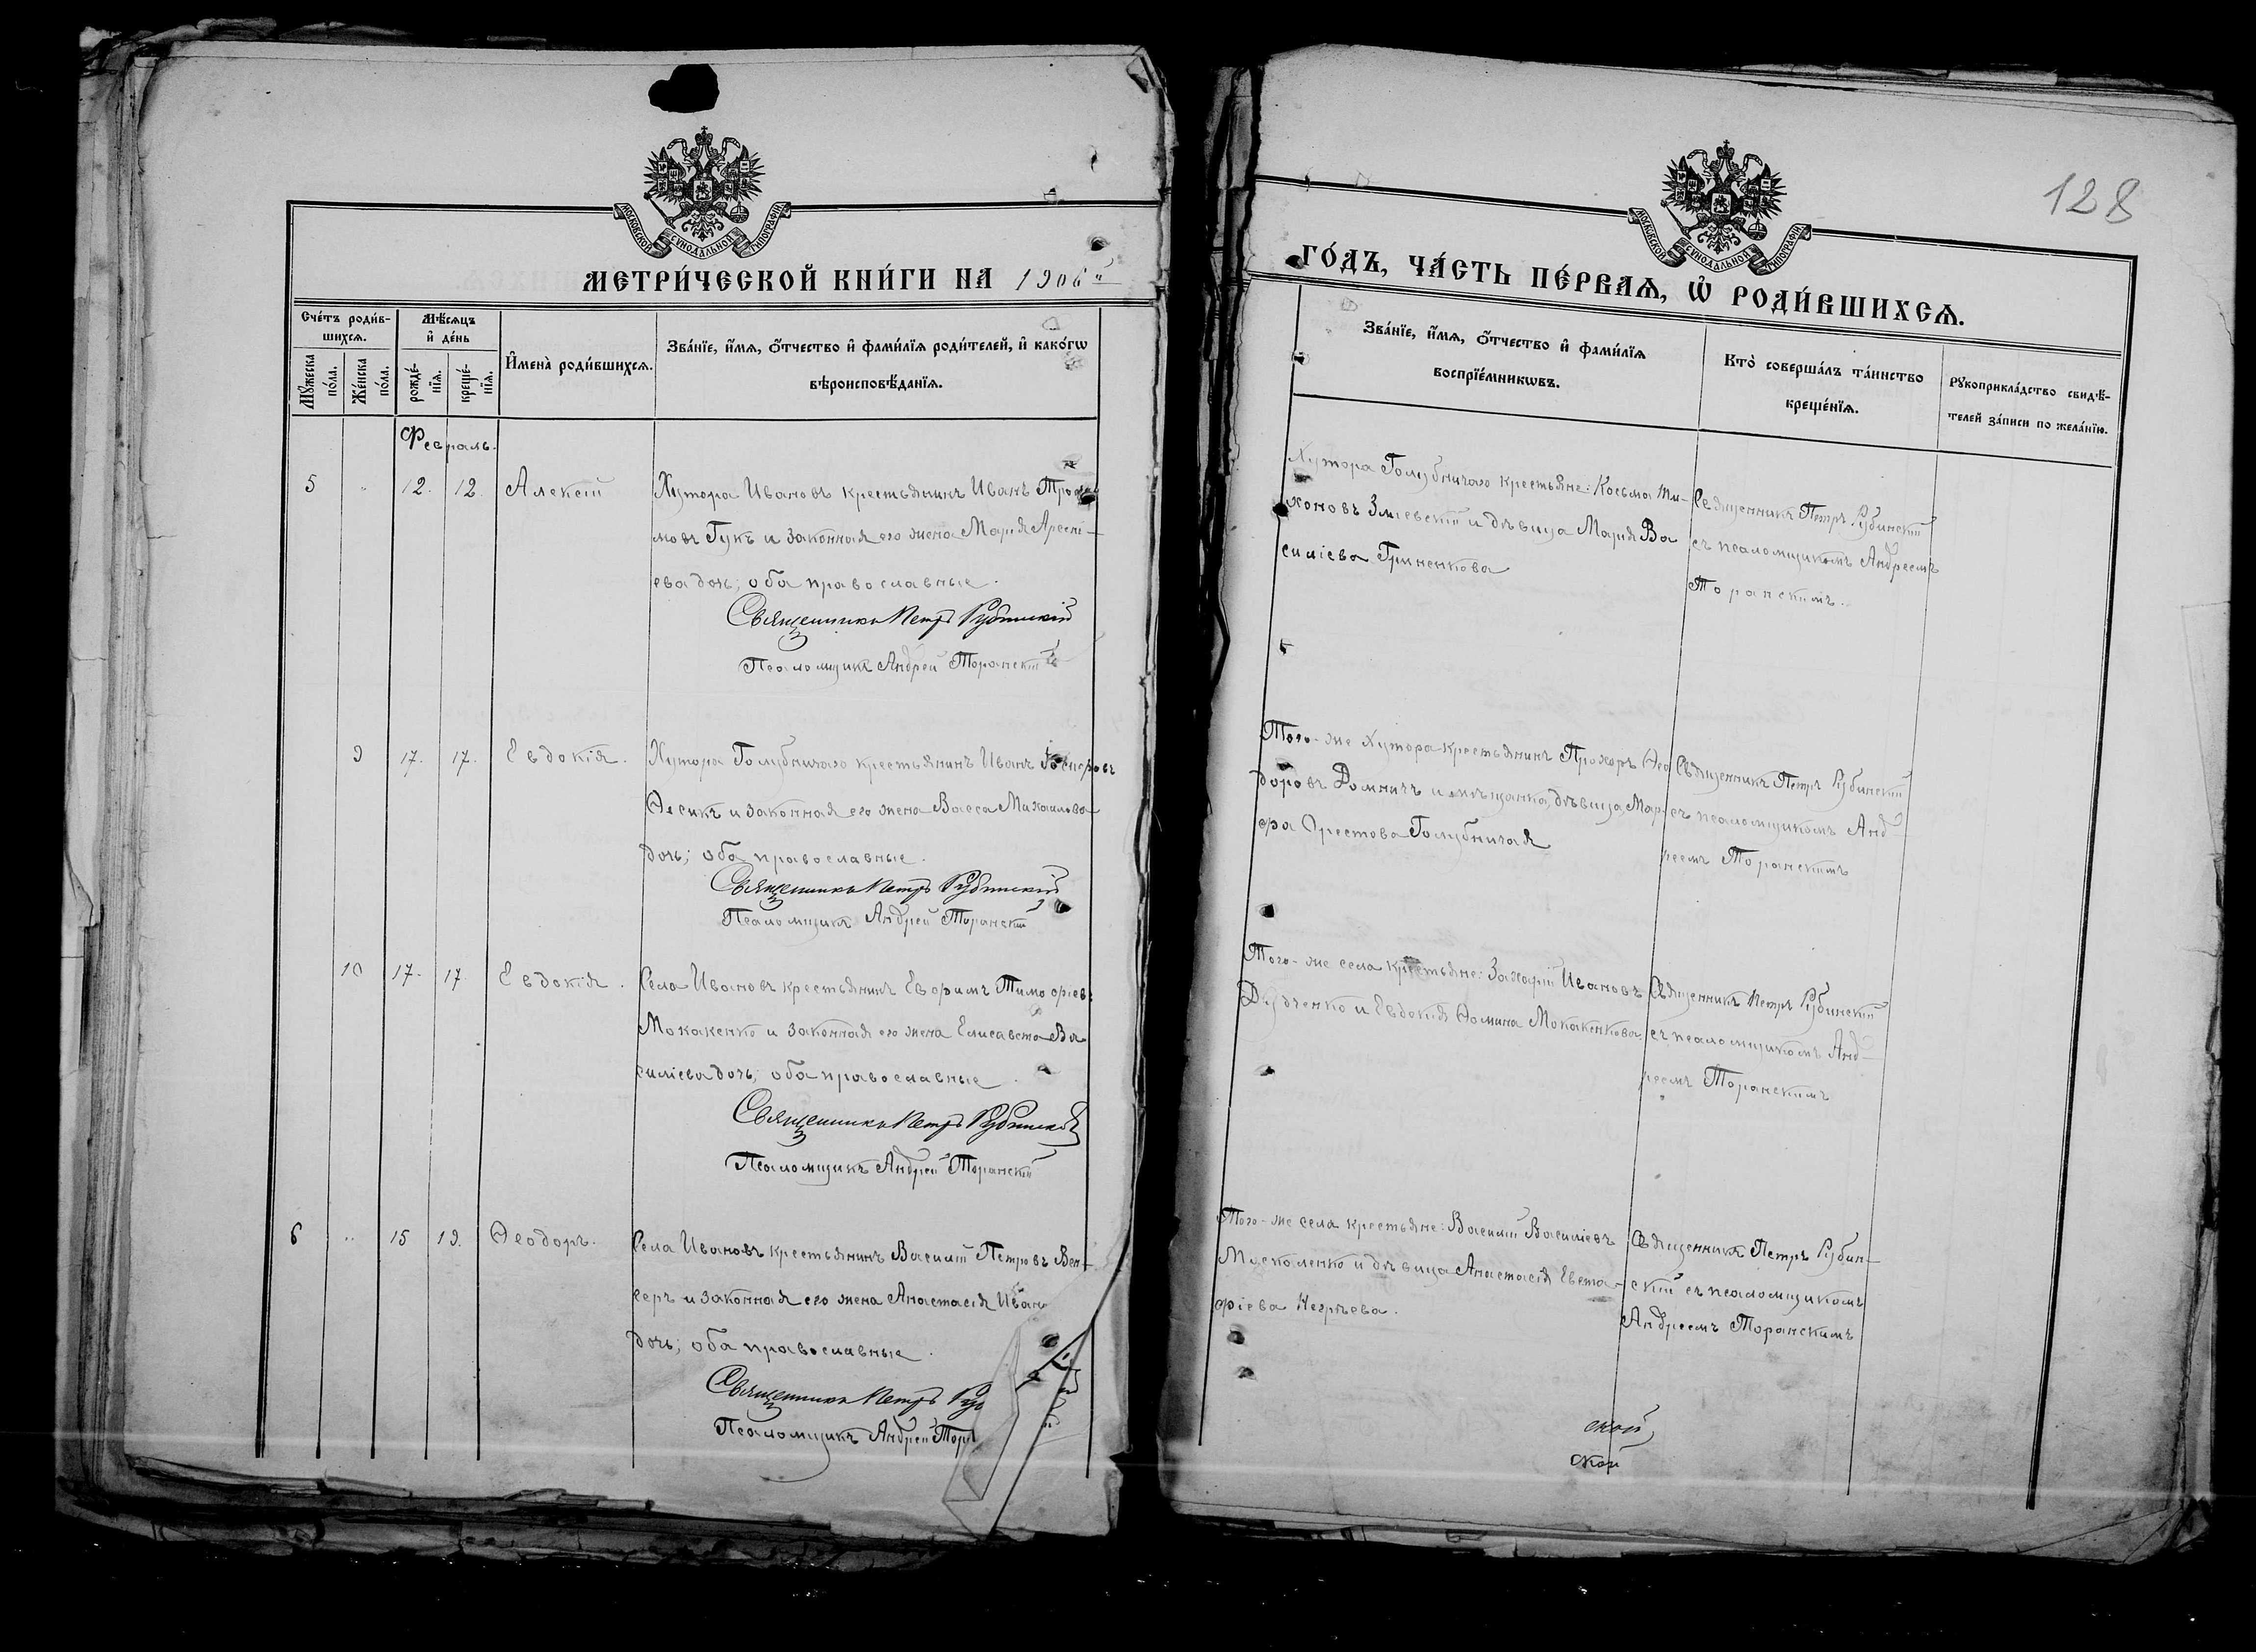 МОСКОВСКОЙ СУНОДАЛЬНОЙ ТИПОГРАФІИ
МЕТРИ́ЧЕСКОЙ КНИ́ГИ НА 1906й
Сче́тъ роди́в-
шихсѧ.
Мѣ́сѧцъ
и҆ де́нь
И҆мена̀ роди́вшихсѧ.
Зва́нїе, и҆́мѧ, ѻ҆́тчество и҆ фами́лїѧ роди́телей, и҆ како́гѡ
вѣроисповѣ́данїѧ.
Мꙋ́жеска
по́ла.
Же́нска
по́ла.
рожде́-
нїѧ.
креще́-
нїѧ.
Февраль.
5 " 12. 12. Алексій Хутора Ивановъ крестьянинъ Иванъ
мовъ Гукъ и законная его жена Марія Арсені-
ева дочь; оба православные.
Священникъ Петръ Рубинскій
Псаломщикъ Андрей Торанскій
9 17. 17. Евдокія. Хутора Голубничаго крестьянинъ Иванъ
Ѳесикъ и законная его жена Васса Михаилова
дочь; оба православные.
Священникъ Петръ Рубинскій
Псаломщикъ Андрей Торанскій
10 17. 17 Евдокія. Села Ивановъ крестьянинъ Евѳимъ Тимоѳіев:
Мокакенко и законная его жена Елисавета Ва-
силіева дочь; оба православные.
Священникъ Петръ Рубинскій
Псаломщикъ Андрей Торанскій
6 " 15 19. Ѳеодоръ. Села Ивановъ крестьянинъ Василій Петровъ Вен-
серъ и законная его жена Анастасія Иван
дочь; оба православные.
Священникъ Петръ Руб
Псаломщикъ Андрей Тор
128
МОСКОВСКОЙ СУНОДАЛЬНОЙ ТИПОГРАФІИ
ГО́ДЪ, ЧА́СТЬ ПЕ́РВАѦ, Ѡ҆ РОДИ́ВШИХСѦ.
Зва́нїе, и҆́мѧ, ѻ҆́тчество и҆ фами́лїѧ
воспрїе́мникѡвъ.
Кто̀ соверша́лъ та́инство
креще́нїѧ.
Рꙋкоприкла́дство свидѣ́-
телей за́писи по жела́нїю.
Хутора Голубничаго крестьяне: Косьма Ти-
хоновъ Зміевскій и дѣвица Марія Ва
силіева Гриненкова
Священникъ Петръ Рубинскій
съ псаломщикомъ Андреемъ
Торанскимъ.
Того-же Хутора крестьянинъ Прохоръ Ѳео
доровъ Домничъ и мѣщанка, дѣвица, Мар-
ѳа Орестова Голубничая
Священникъ Петръ Рубинскій
съ псаломщикомъ Анд-
реемъ Торанскимъ
Того-же села крестьяне: Захарій Ивановъ
Дудченко и Евдокія Ѳомина Мокакенкова.
Священникъ Петръ Рубинскій
съ псаломщикомъ Анд-
реемъ Торанскимъ
Того-же села крестьяне: Василій Василіевъ
Москаленко и дѣвица Анастасія Евста-
ѳіева Негрѣева.
Священникъ Петръ Рубин-
скій съ псаломщикомъ
Андреемъ Торанскимъ
ской
ской